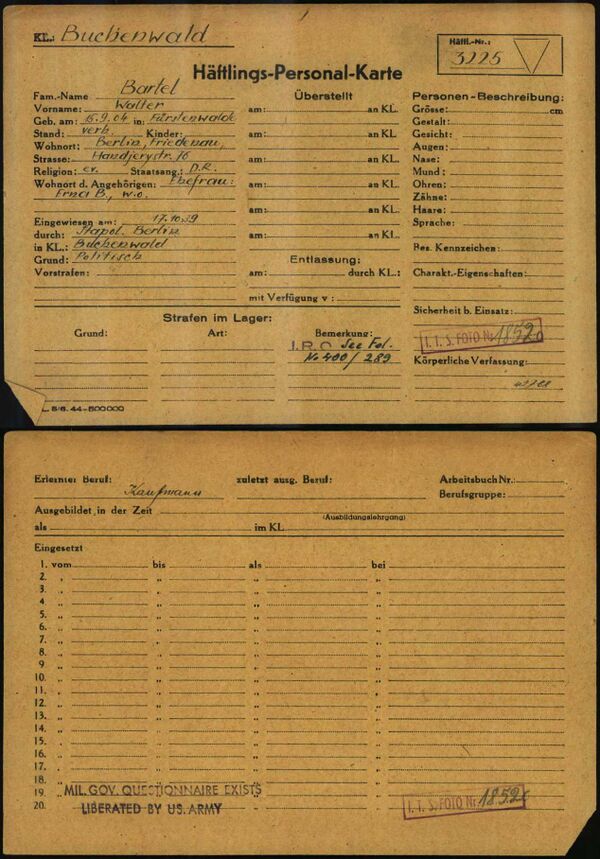 KL.: Buchenwald
Häftl.-Nr.:
3225
Häftlings-Personal-Karte
Fam.-Name Bartel
Vorname: Walter
Geb. am: 15.9.04 in: Fürstenwalde
Stand: verh. Kinder:
Wohnort: Berlin, Friedenau,
Strasse: Handjerystr. 76
Religion: ev. Staatsang.: D.R.
Wohnort d. Angehörigen: Ehefrau:
Erna B., w.o.
Eingewiesen am: 17.10.39
durch: Stapol. Berlin
in KL.: Buchenwald
Grund: Politisch
Vorstrafen:
Überstellt
am: an KL.
am: an KL.
am: an KL.
am: an KL.
am: an KL.
am: an KL.
Entlassung:
am: durch KL.:
mit Verfügung v:
Personen-Beschreibung:
Grösse: cm
Gestalt:
Gesicht:
Augen:
Nase:
Mund:
Ohren:
Zähne:
Haare:
Sprache:
Bes. Kennzeichen:
Charakt.-Eigenschaften:
Sicherheit b. Einsatz:
I. T. S. FOTO Nr. 1852
Körperliche Verfassung:
Strafen im Lager:
Grund: Art: Bemerkung:
I.R.O See Fol.
No 400/289
5/6. 44-500000
Erlernter Beruf: Kaufmann zuletzt ausg. Beruf: Arbeitsbuch Nr.:
Berufsgruppe:
Ausgebildet in der Zeit
(Ausbildungslehrgang)
als im KL
Eingesetzt
1. vom bis als bei
2. „ „ „ „
3. „ „ „ „
4. „ „ „ „
5. „ „ „ „
6. „ „ „ „
7. „ „ „ „
8. „ „ „ „
9. „ „ „ „
10. „ „ „ „
11. „ „ „ „
12. „ „ „ „
13. „ „ „ „
14. „ „ „ „
15. „ „ „ „
16. „ „ „ „
17. „ „ „ „
18. „ „ „ „
19. MIL. GOV. QUESTIONNAIRE EXISTS
20. LIBERATED BY US. ARMY
I. T. S. FOTO Nr. 1852